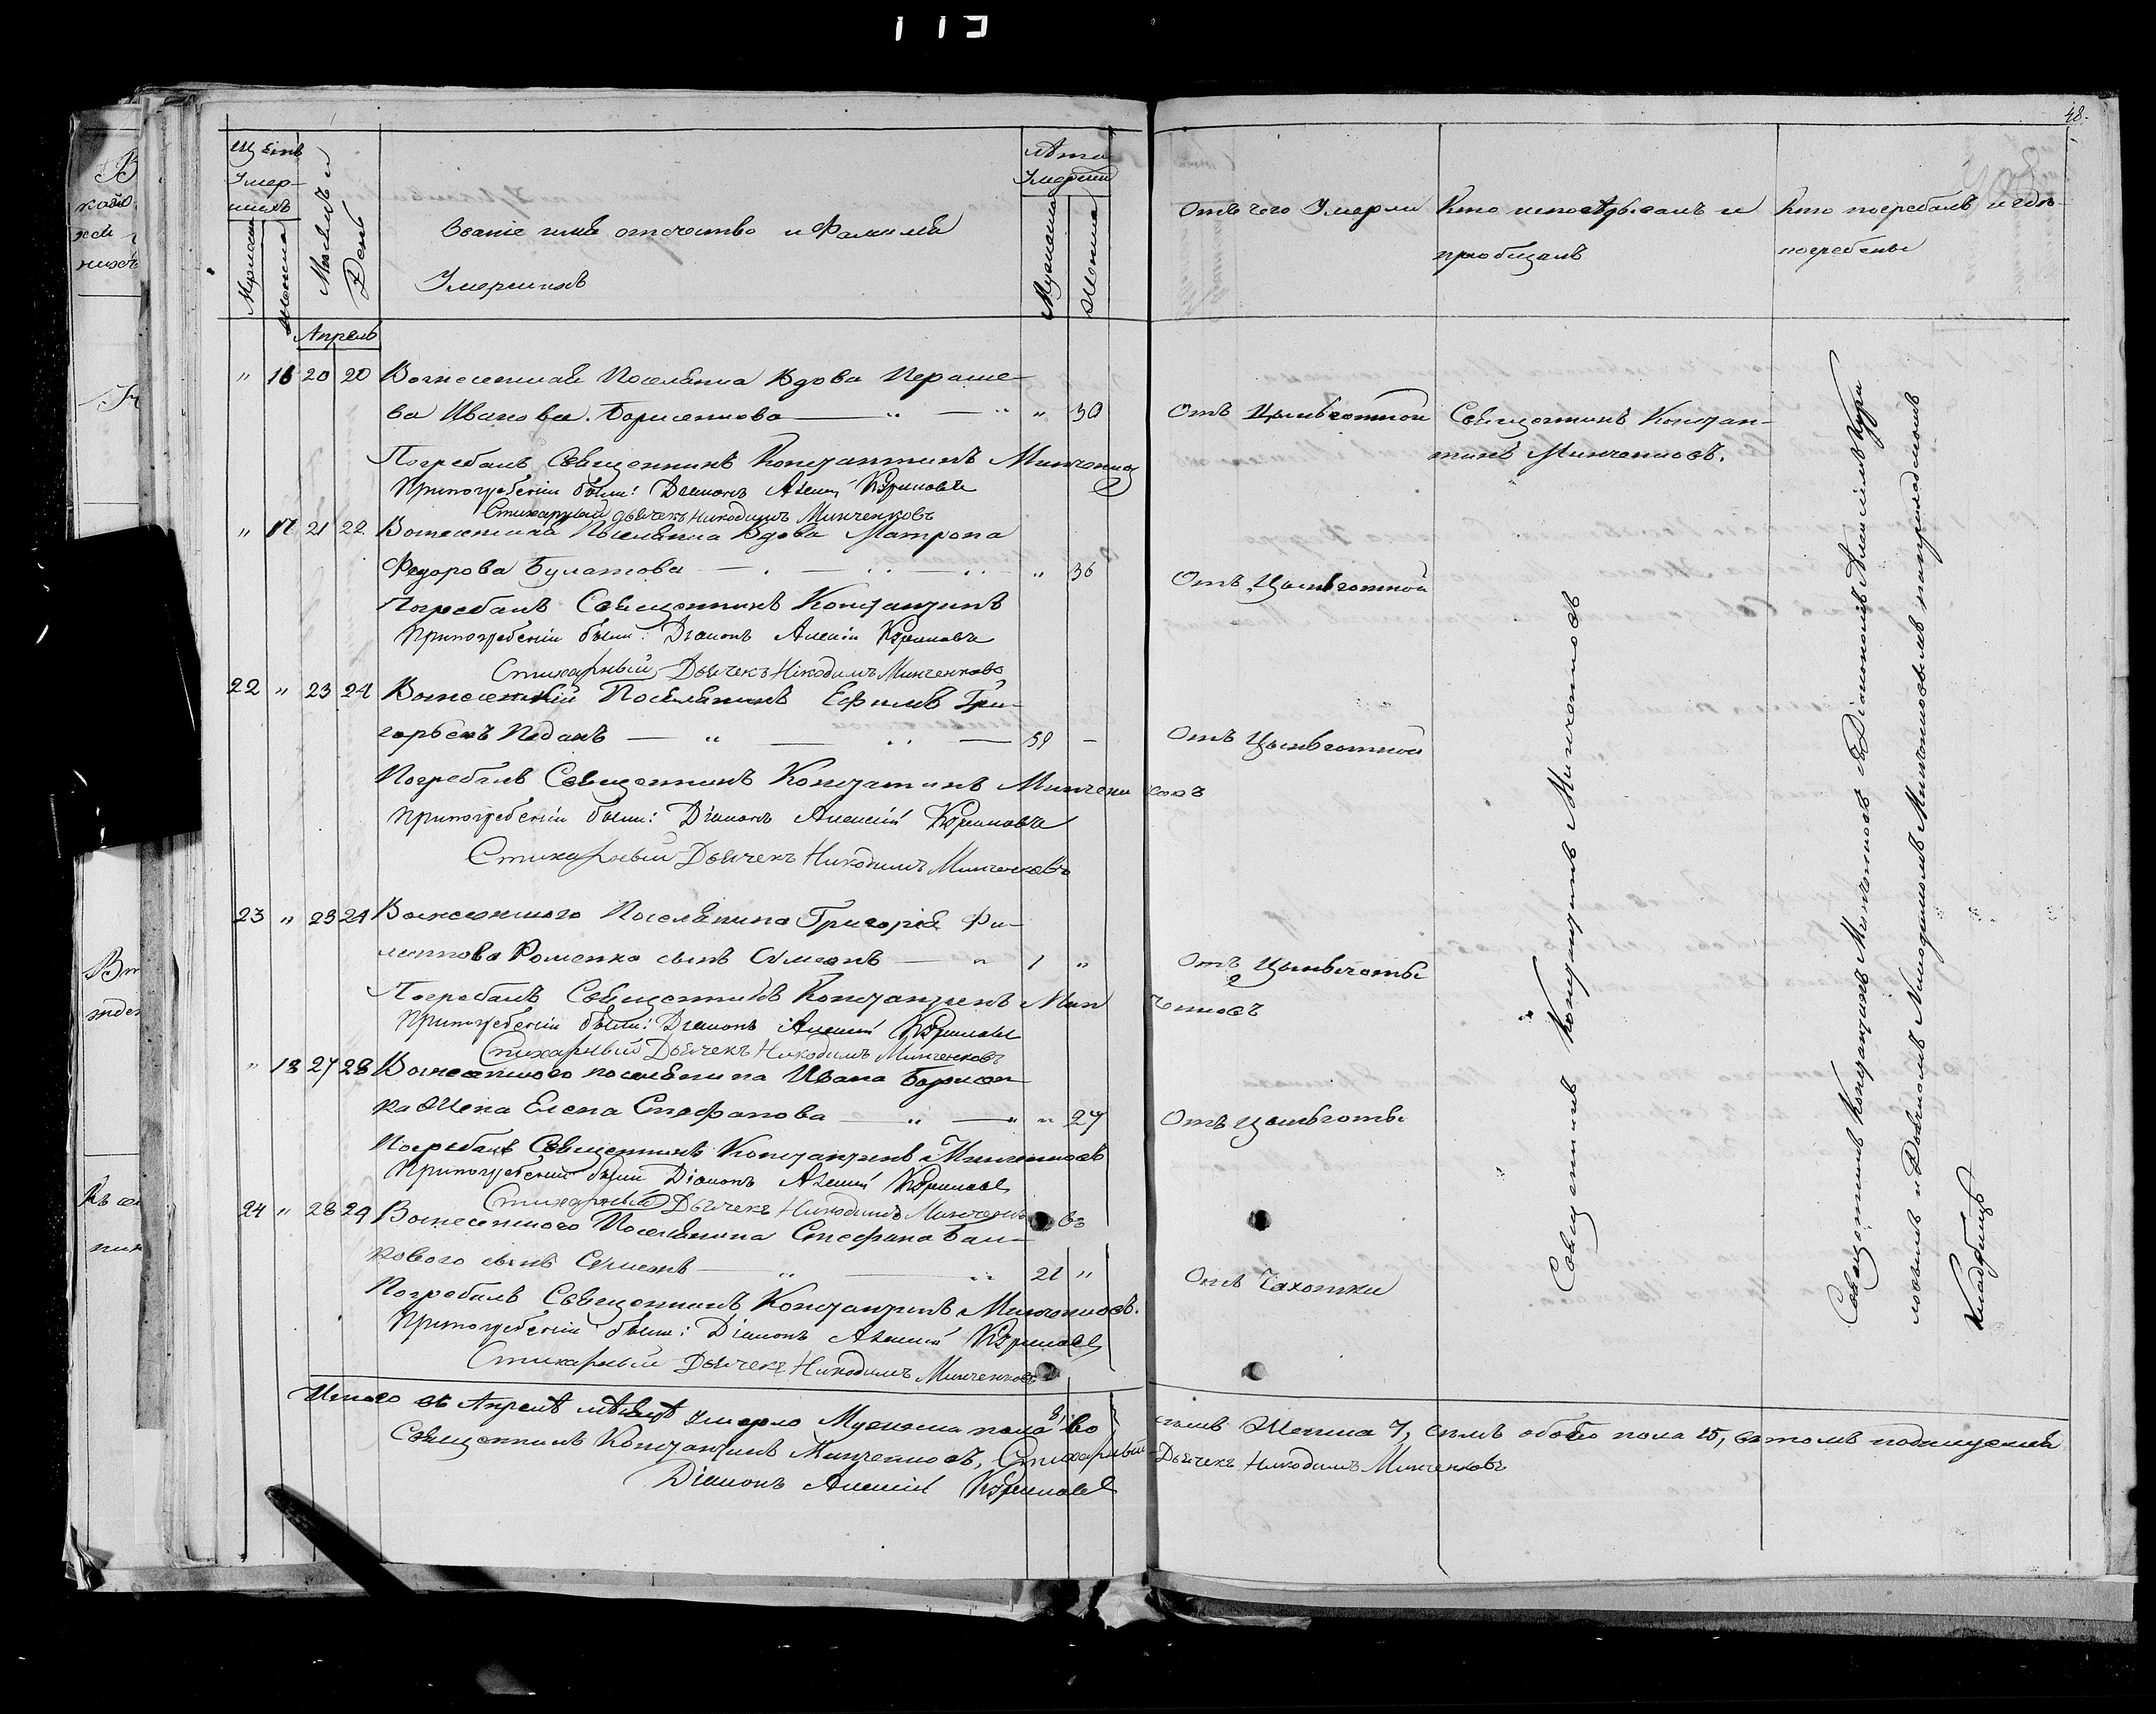 119
48.
Счетъ
Умер-
шихъ
Мужеска
Женска
Мѣсяцъ и
День
Званіе имя отечество и Фамилія
Умершихъ
Лѣта
Умерших
Мужеска
Женска
Отъ чего Умерли
Кто исповѣдывалъ и
пріобщалъ
Кто погребалъ и гдѣ
погребены
Апрель
" 16 20 20 Вознесенская Поселянка Вдова Параске-
ва Иванова Борисенкова " 30 Отъ Цынготной Священникъ Констан-
тинъ Минченковъ.
Погребалъ Священникъ Константинъ Минченков
При погребеніи были: Діаконъ Алексій
Стихарный Дьячекъ Никодимъ Минченковъ
" 17 21 22 Вознесенская Поселянка Вдова Матрона
Федорова Булатова " 36 Отъ Цынготной
Погребалъ Священникъ Константинъ
При погребеніи были: Діаконъ Алексій
Стихарный Дьячекъ Никодимъ Минченковъ
22 " 23 24 Вознесенскій Поселянинъ Ефимъ Гри-
горьевъ 59 - Отъ Цынготной
Погребалъ Священникъ Константинъ Минченковъ
При погребеніи были: Діаконъ Алексій
Стихарный Дьячекъ Никодимъ Минченковъ
23 " 23 24 Вознесенского Поселянина Григорія Фи-
липпова Роменка сынъ Симеонъ 1 " Отъ Цынготы
Погребалъ Священникъ Константинъ Минченковъ
При погребеніи были: Діаконъ Алексій
Стихарный Дьячекъ Никодимъ Минченковъ
" 18 27 28 Вознесенского поселянина Ивана Борисен-
ка Жена Елена Стефанова " 27 Отъ Цынготы
Погребалъ Священникъ Константинъ Минченковъ
При погребеніи были Діаконъ Алексій
Стихарный Дьячекъ Никодимъ Минченковъ
24 " 28 29 Вознесенского Поселянина Стефана
сынъ Симеонъ 21 " Отъ Чахотки
Погребалъ Священникъ Константинъ Минченковъ.
При погребеніи были: Діаконъ Алексій
Стихарный Дьячекъ Никодимъ Минченковъ
Священникъ Константинъ Минченковъ
Священникъ Константинъ Минченковъ съ Діакономъ Алексіемъ
и Дьячкомъ Никодимомъ Минченковымъ на приходскомъ
Кладбищѣ
Итого въ Апрелѣ мѣсяцѣ Умерло Мужеска пола Женска 7, обоего пола 15, въ томъ подписуемся
Священникъ Константинъ Минченковъ, Стихарный Дьячекъ Никодимъ Минченковъ
Діаконъ Алексій